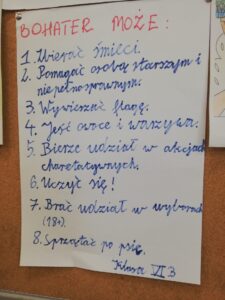 BOHATER MOŻE:
1. Zbierać śmieci.
2. Pomagać osobą starszym i
niepełnosprawnym.
3. Wywieszać flagę.
4. Jeść owoce i warzywa.
5. Bierze udział w akcjach
charetatywnych.
6. Uczyć się!
7. Brać udział w wyborach
(18+).
8. Sprzątać po psie.
Klasa VI B